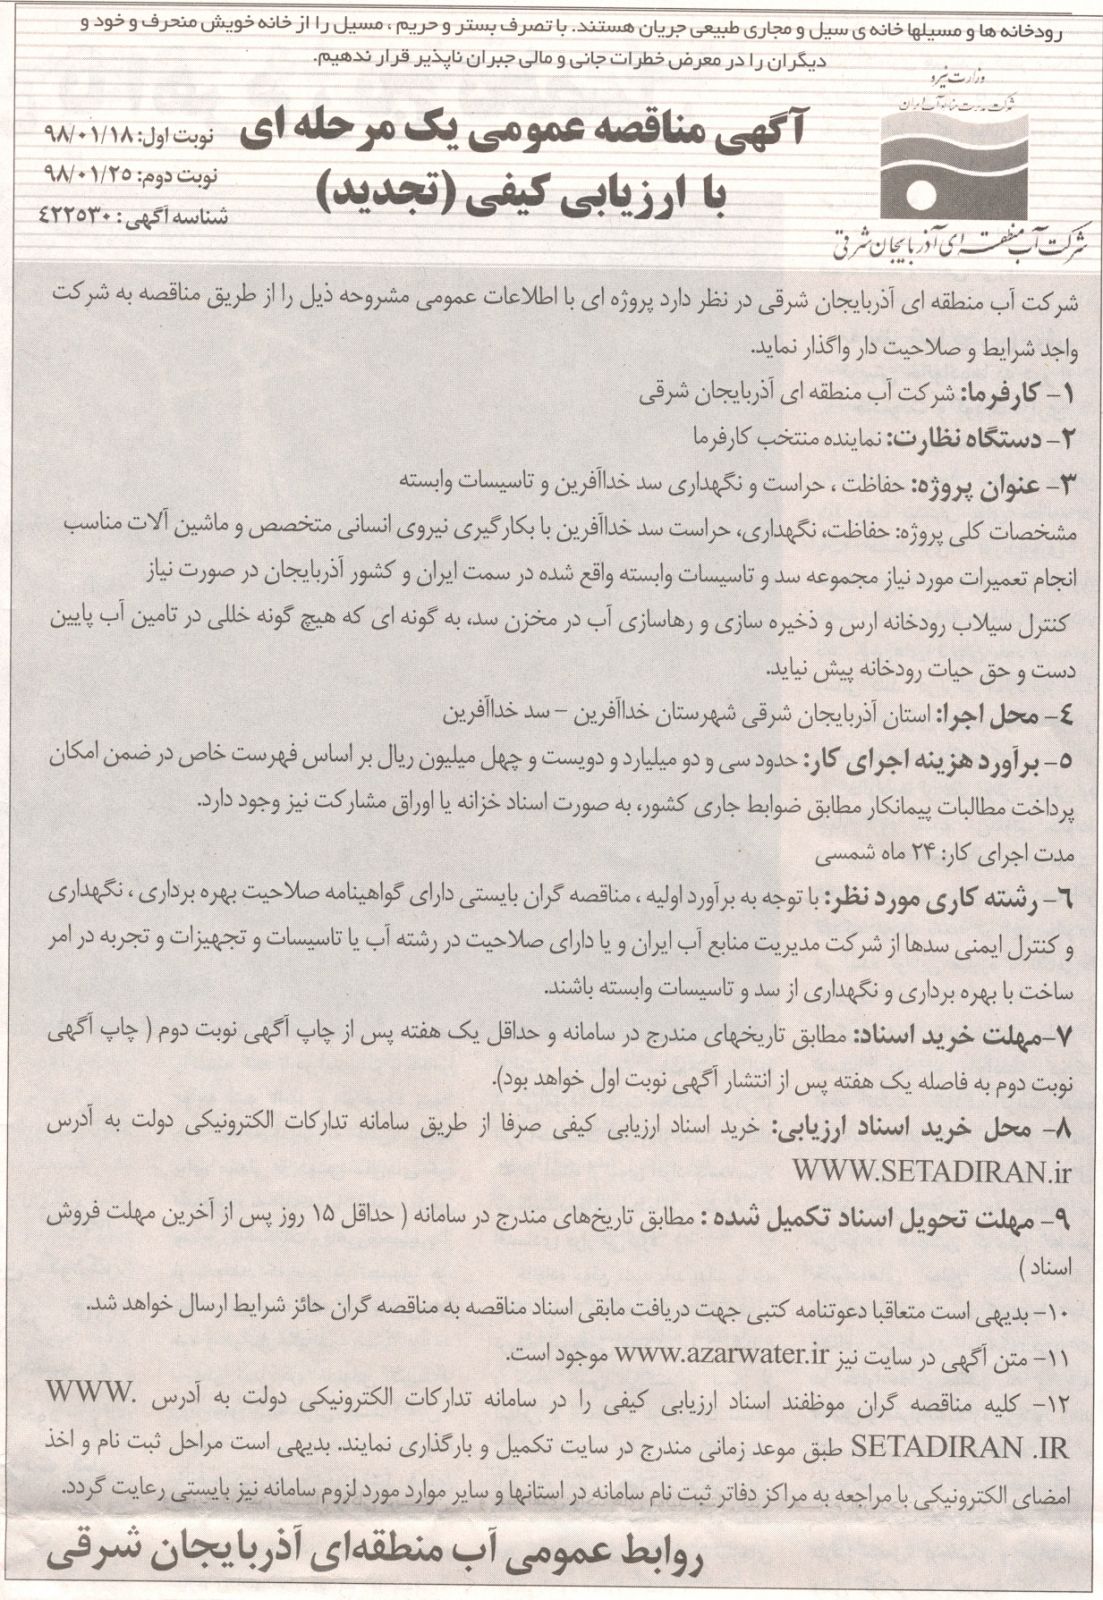 رودخانه ها و مسیلها خانه ی سیل و مجاری طبیعی جریان هستند. با تصرف بستر و حریم ، مسیل را از خانه خویش منحرف و خود و
دیگران را در معرض خطرات جانی و مالی جبران ناپذیر قرار ندهیم.
وزارت نیرو
شرکت مدیریت منابع آب ایران
شرکت آب منطقه ای آذربایجان شرقی
آگهی مناقصه عمومی یک مرحله ای
با ارزیابی کیفی (تجدید)
نوبت اول: ۹۸/۰۱/۱۸
نوبت دوم: ۹۸/۰۱/۲۵
شناسه آگهی: ۴۲۲۵۳۰
شرکت آب منطقه ای آذربایجان شرقی در نظر دارد پروژه ای با اطلاعات عمومی مشروحه ذیل را از طریق مناقصه به شرکت
واجد شرایط و صلاحیت دار واگذار نماید.
۱- کارفرما: شرکت آب منطقه ای آذربایجان شرقی
۲- دستگاه نظارت: نماینده منتخب کارفرما
۳- عنوان پروژه: حفاظت ، حراست و نگهداری سد خداآفرین و تاسیسات وابسته
مشخصات کلی پروژه: حفاظت، نگهداری، حراست سد خداآفرین با بکارگیری نیروی انسانی متخصص و ماشین آلات مناسب
انجام تعمیرات مورد نیاز مجموعه سد و تاسیسات وابسته واقع شده در سمت ایران و کشور آذربایجان در صورت نیاز
کنترل سیلاب رودخانه ارس و ذخیره سازی و رهاسازی آب در مخزن سد، به گونه ای که هیچ گونه خللی در تامین آب پایین
دست و حق حیات رودخانه پیش نیاید.
۴- محل اجرا: استان آذربایجان شرقی شهرستان خداآفرین - سد خداآفرین
۵- برآورد هزینه اجرای کار: حدود سی و دو میلیارد و دویست و چهل میلیون ریال بر اساس فهرست خاص در ضمن امکان
پرداخت مطالبات پیمانکار مطابق ضوابط جاری کشور، به صورت اسناد خزانه یا اوراق مشارکت نیز وجود دارد.
مدت اجرای کار: ۲۴ ماه شمسی
۶- رشته کاری مورد نظر: با توجه به برآورد اولیه ، مناقصه گران بایستی دارای گواهینامه صلاحیت بهره برداری ، نگهداری
و کنترل ایمنی سدها از شرکت مدیریت منابع آب ایران و یا دارای صلاحیت در رشته آب یا تاسیسات و تجهیزات و تجربه در امر
ساخت با بهره برداری و نگهداری از سد و تاسیسات وابسته باشند.
۷-مهلت خرید اسناد: مطابق تاریخهای مندرج در سامانه و حداقل یک هفته پس از چاپ آگهی نوبت دوم ( چاپ آگهی
نوبت دوم به فاصله یک هفته پس از انتشار آگهی نوبت اول خواهد بود).
۸- محل خرید اسناد ارزیابی: خرید اسناد ارزیابی کیفی صرفا از طریق سامانه تدارکات الکترونیکی دولت به آدرس
WWW.SETADIRAN.ir
۹- مهلت تحویل اسناد تکمیل شده : مطابق تاریخ‌های مندرج در سامانه ( حداقل ۱۵ روز پس از آخرین مهلت فروش
اسناد )
۱۰- بدیهی است متعاقبا دعوتنامه کتبی جهت دریافت مابقی اسناد مناقصه به مناقصه گران حائز شرایط ارسال خواهد شد.
۱۱- متن آگهی در سایت نیز www.azarwater.ir موجود است.
۱۲- کلیه مناقصه گران موظفند اسناد ارزیابی کیفی را در سامانه تدارکات الکترونیکی دولت به آدرس WWW.
SETADIRAN .IR طبق موعد زمانی مندرج در سایت تکمیل و بارگذاری نمایند. بدیهی است مراحل ثبت نام و اخذ
امضای الکترونیکی با مراجعه به مراکز دفاتر ثبت نام سامانه در استانها و سایر موارد مورد لزوم سامانه نیز بایستی رعایت گردد.
روابط عمومی آب منطقه‌ای آذربایجان شرقی